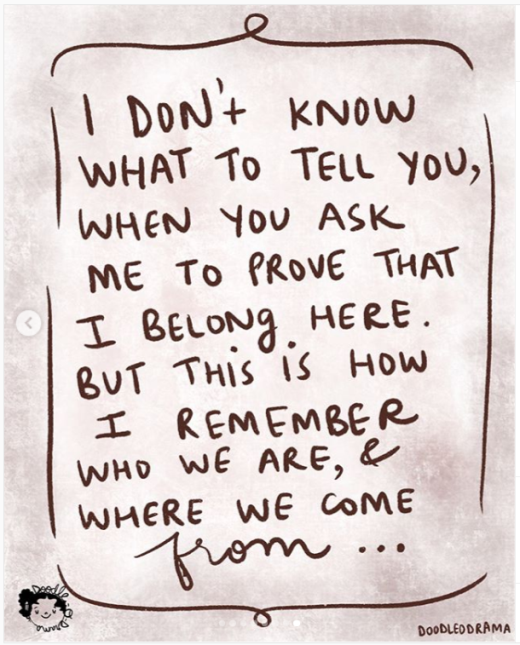 I DON't KNOW
WHAT TO TELL YOU,
WHEN YOU ASK
ME TO PROVE THAT
I BELONG HERE.
BUT THIS IS HOW
I REMEMBER
WHO WE ARE, &
WHERE WE COME
from ...
Doodle O Drama
DOODLEODRAMA